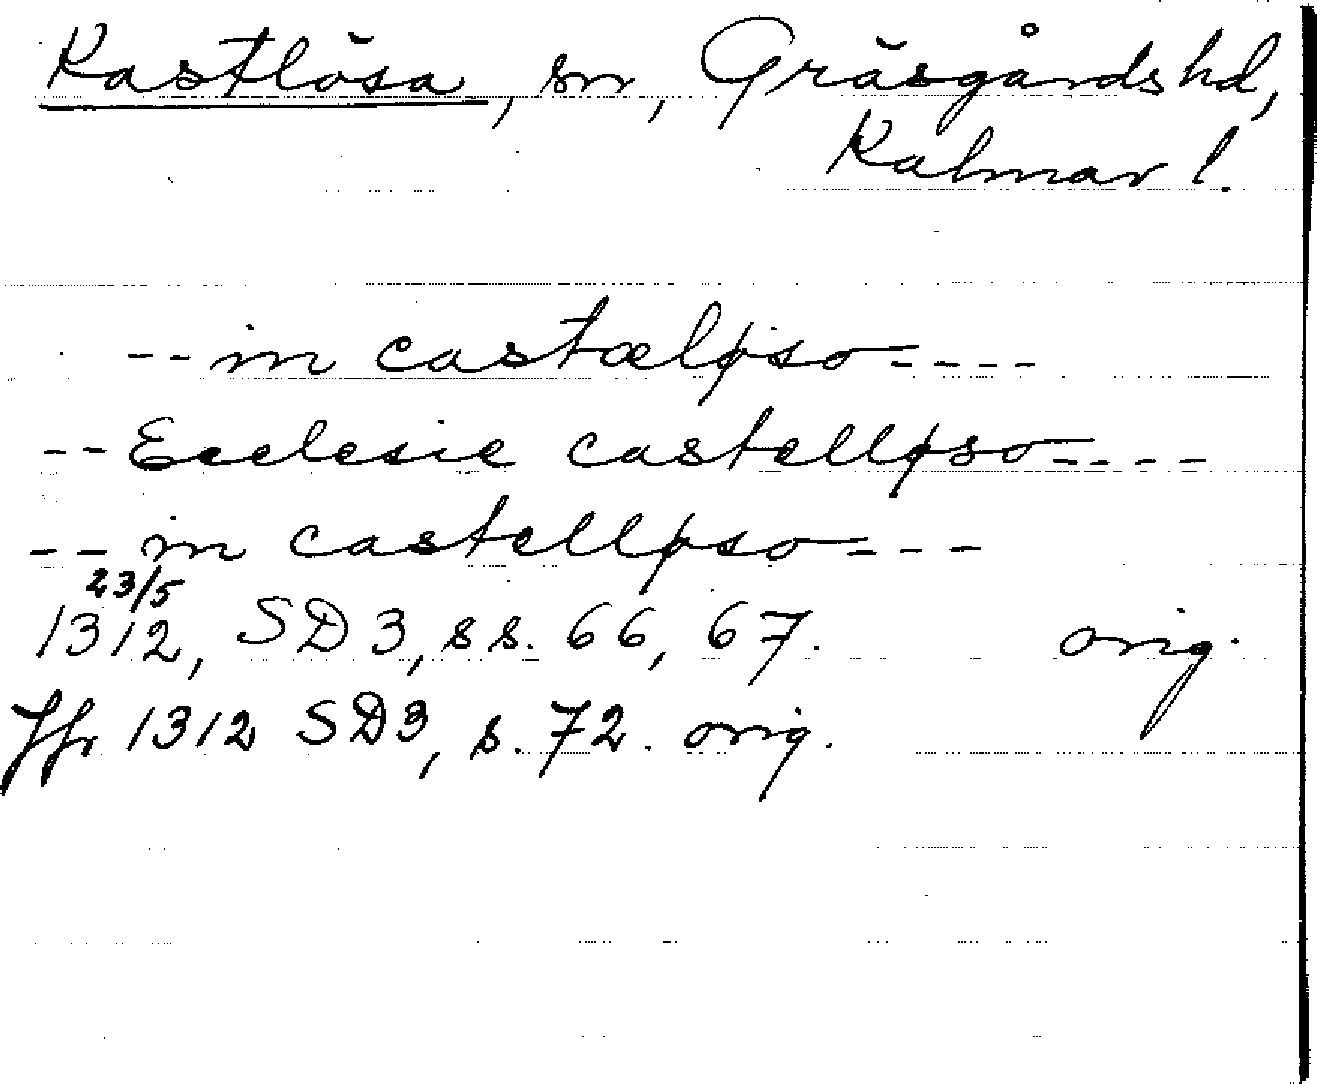 Kastlösa, sn, Gräsgårds hd,
Kalmar l.
-- in castæløso ----
-- Ecclesie castelløso ----
-- in castelløso ---
23/5
1312, SD 3, ss. 66, 67. orig.
Jfr 1312 SD3, s. 72. orig.